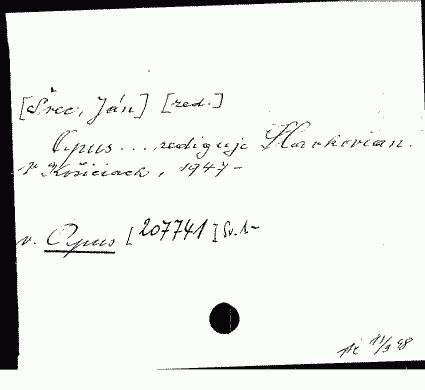 [Šrec, Ján] [red.]
Opus ... rediguje Slavkovian.
V Košiciach, 1947-
v. Opus [207741] Sv. 1-
11/3 48